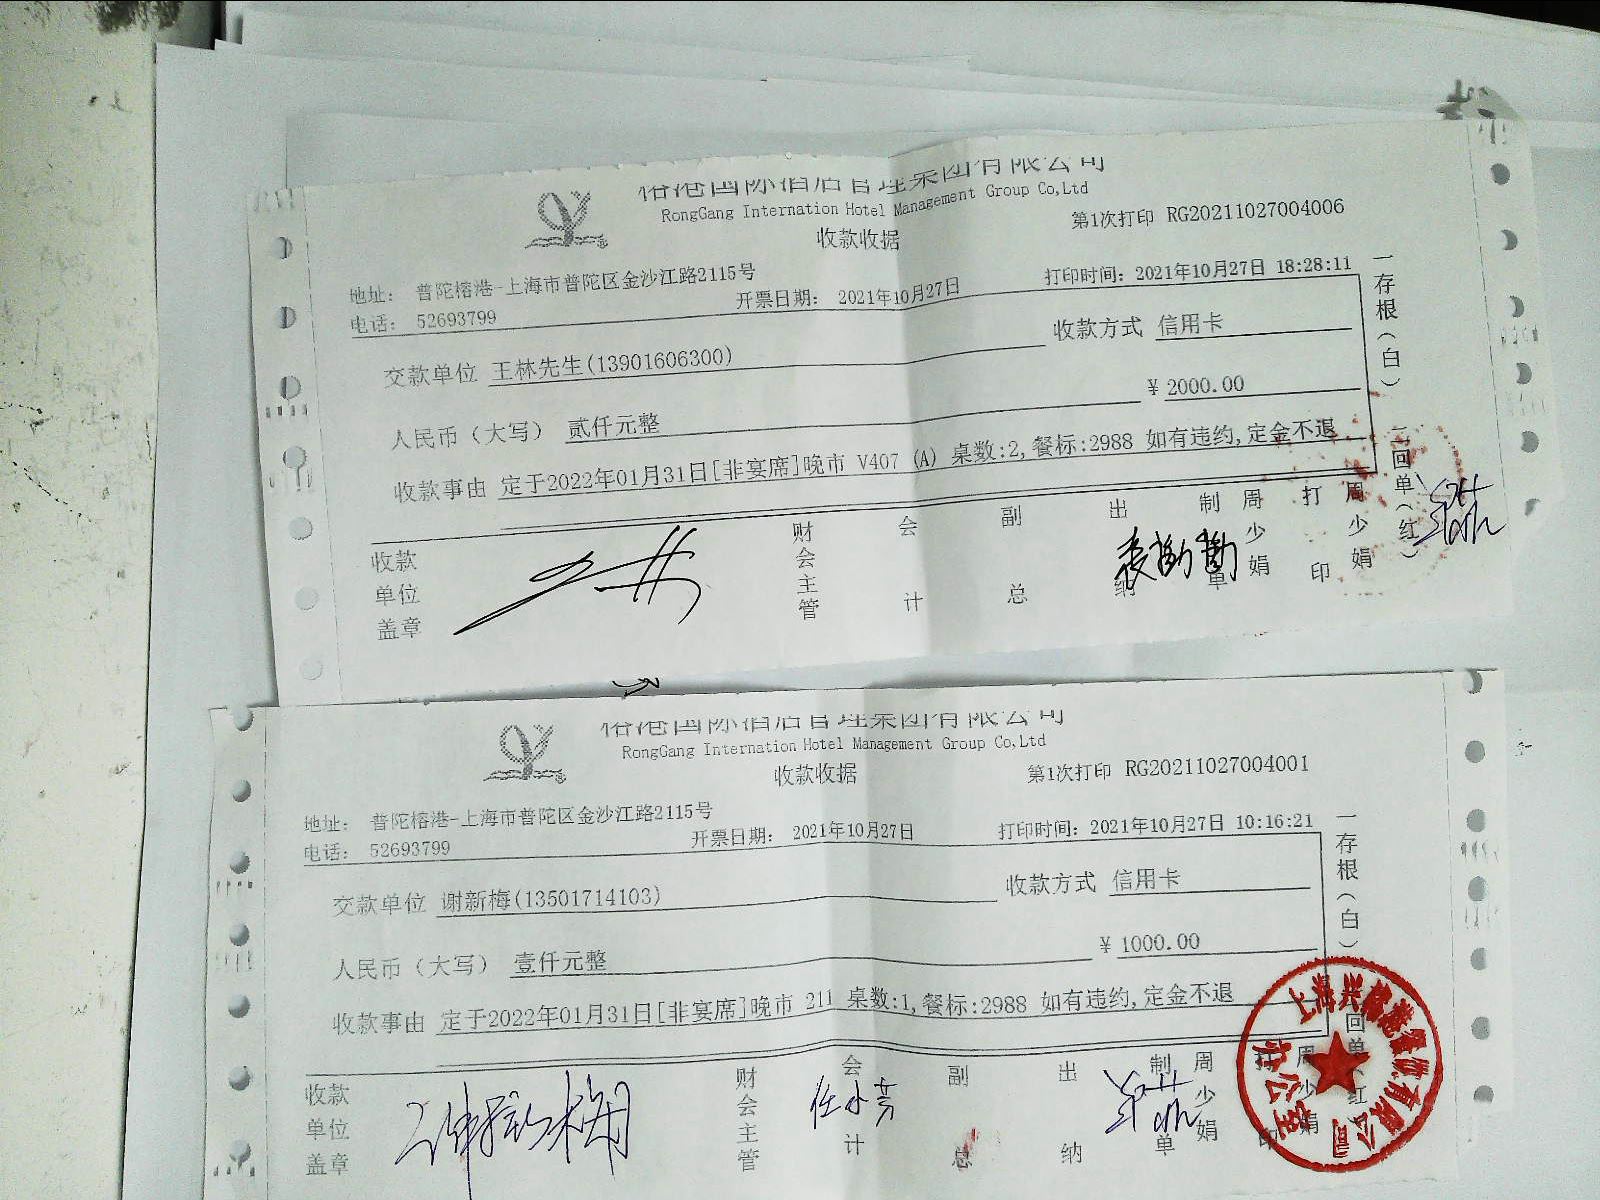 榕港国际酒店管理集团有限公司
RongGang Internation Hotel Management Group Co,Ltd
收款收据
第1次打印 RG20211027004006
地址： 普陀榕港-上海市普陀区金沙江路2115号
电话： 52693799
开票日期： 2021年10月27日
打印时间：2021年10月27日 18:28:11
交款单位 王林先生(13901606300)
收款方式 信用卡
人民币（大写） 贰仟元整
¥ 2000.00
收款事由 定于2022年01月31日[非宴席]晚市 V407 (A) 桌数:2,餐标:2988 如有违约,定金不退
一存根（白） 二回单（红）
收款单位盖章
财会主管
会计
副总
出纳
制单
周少娟
打印
周少娟
榕港国际酒店管理集团有限公司
RongGang Internation Hotel Management Group Co,Ltd
收款收据
第1次打印 RG20211027004001
地址： 普陀榕港-上海市普陀区金沙江路2115号
电话： 52693799
开票日期： 2021年10月27日
打印时间：2021年10月27日 10:16:21
交款单位 谢新梅(13501714103)
收款方式 信用卡
人民币（大写） 壹仟元整
¥ 1000.00
收款事由 定于2022年01月31日[非宴席]晚市 211 桌数:1,餐标:2988 如有违约,定金不退
一存根（白） 二回单（红）
收款单位盖章
谢新梅
财会主管
会计
任水芳
副总
出纳
制单
周少娟
打印
周少娟
办公室